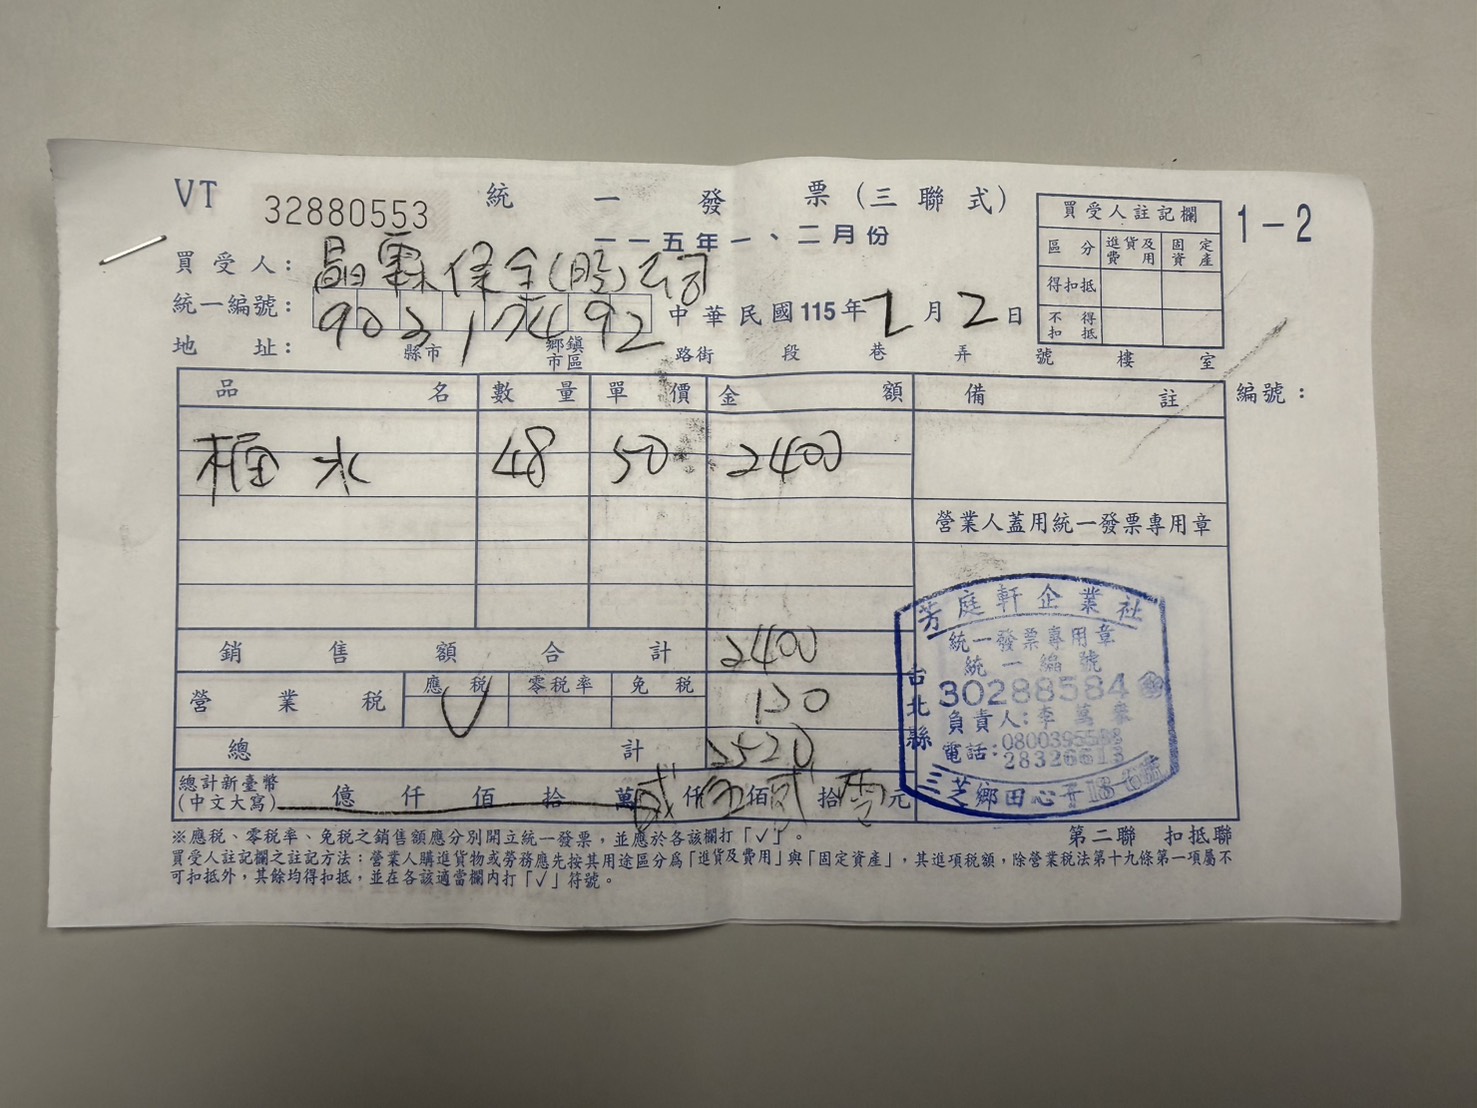 VT 32880553 統一發票(三聯式) 1-2
一一五年一、二月份
買受人: 晶霖保全(股)公司
統一編號: 90317492 中華民國115年2月2日
地址: 縣市 鄉鎮市區 路街 段 巷 弄 號 樓 室
買受人註記欄
區分 進貨及費用 固定資產
得扣抵
不得扣抵
編號:
品名 數量 單價 金額 備註
桶水 48 50 2400
營業人蓋用統一發票專用章
銷售額合計 2400
營業税 應税 V 零税率 免税 120
總計 2520
總計新臺幣(中文大寫) 億 仟 佰 拾 萬 貳仟 伍佰 貳拾 零元
芳庭軒企業社
統一發票專用章
統一編號
30288584
負責人:李萬
電話:
台北縣
三芝鄉田心子
※應税、零税率、免税之銷售額應分別開立統一發票,並應於各該欄打「√」。 第二聯 扣抵聯
買受人註記欄之註記方法:營業人購進貨物或勞務應先按其用途區分為「進貨及費用」與「固定資產」,其進項税額,除營業税法第十九條第一項屬不
可扣抵外,其餘均得扣抵,並在各該適當欄內打「√」符號。